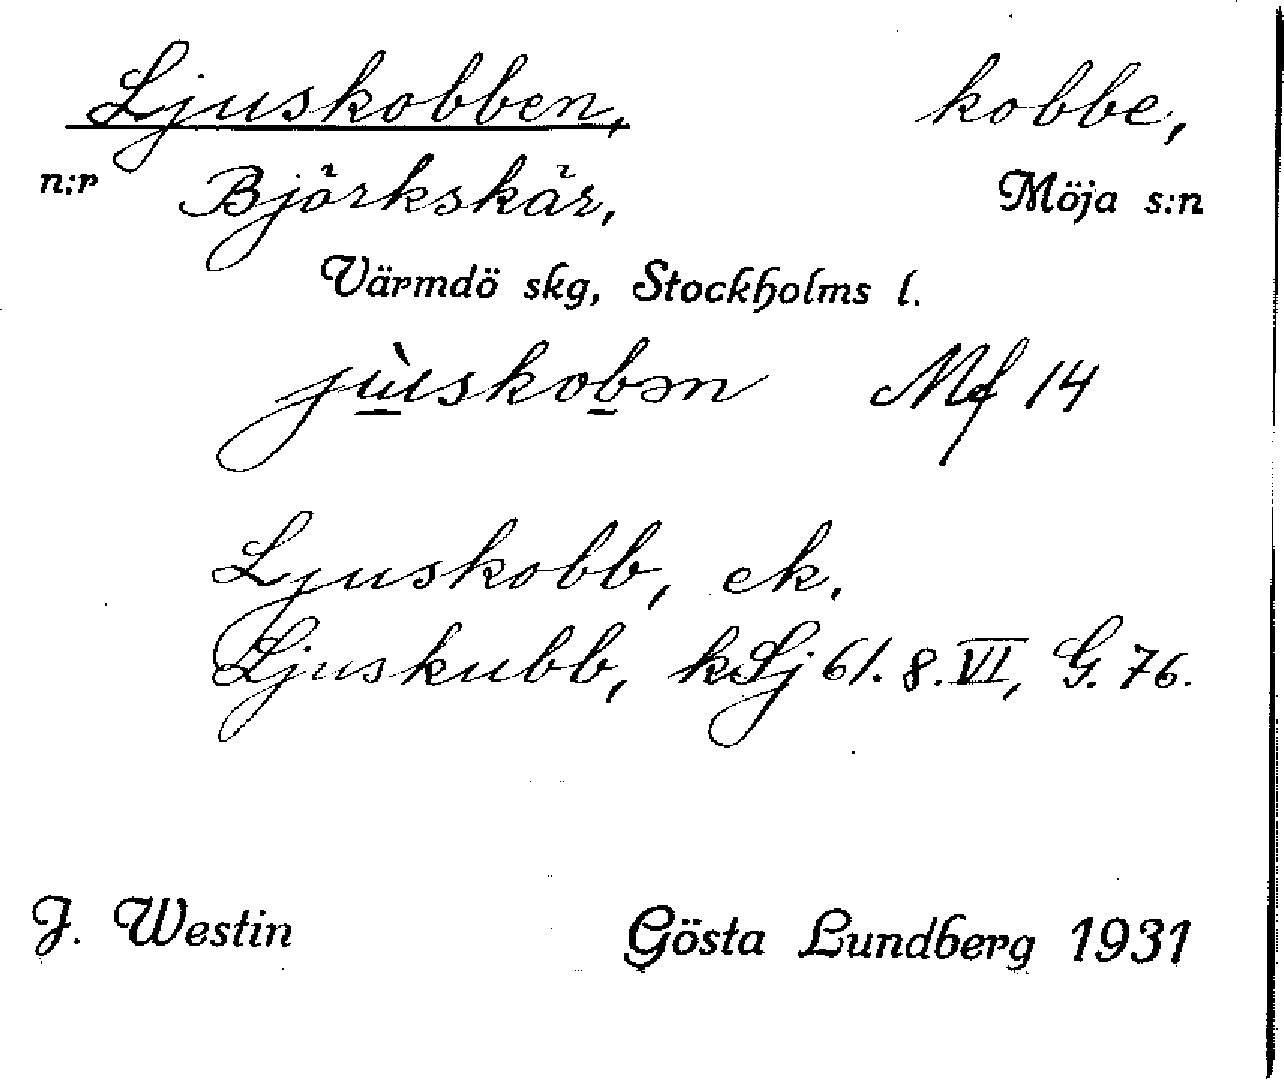 Ljuskobben, kobbe,
n:r Björkskär, Möja s:n
Värmdö skg, Stockholms l.
jùskobən Mf 14
Ljuskobb, ek.
Ljuskubb, kSj 61. 8. VI, G. 76.
J. Westin Gösta Lundberg 1931